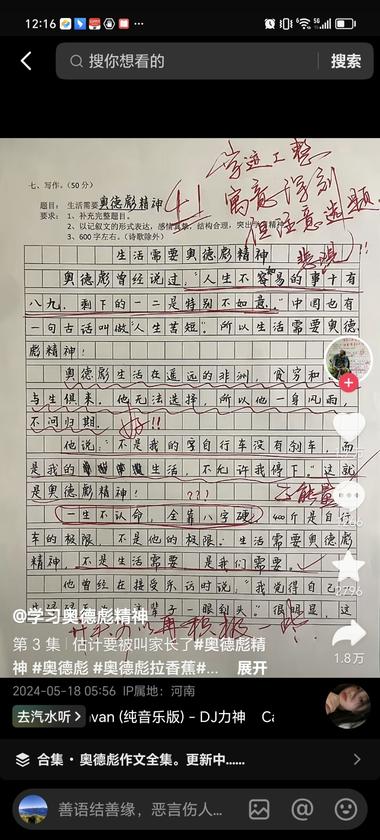 12:16
搜你想看的
搜索
字迹工整
寓意深刻
但注意选题
悲观!!
七、写作。(50分)
题目: 生活需要奥德彪精神
要求: 1、补充完整题目。
2、以记叙文的形式表达,感情真挚,结构合理,突出
3、600字左右。(诗歌除外)
生活需要奥德彪精神
奥德彪曾经说过,"人生不容易的事十有
八九,剩下的一二是特别不如意。"中国也有
一句古话叫做"人生苦短"。所以生活需要奥德
彪精神!
奥德彪生活在遥远的非洲,贫穷和
与生俱来。他无法选择,所以他一身风雨,
不问归期。
好!!
他说:"不是我的字自行车没有刹车,而
是我的 生活,不允许我停下。"这就
是奥德彪精神!
???
正能量
一生不认命,全靠八字硬。400斤是自行
车的极限,不是他的极限。生活需要奥德彪
精神,不是生活需要 是我们需要。
他曾经在接受采访时说:"我觉得自己
子一眼到头。"很明显,这
@学习奥德彪精神
第 3 集 | 估计要被叫家长了#奥德彪精
神 #奥德彪 #奥德彪拉香蕉#... 展开
2796
1.8万
2024-05-18 05:56 IP属地:河南
去汽水听 >
van (纯音乐版) - DJ力神 Ca
合集 · 奥德彪作文全集。更新中......
善语结善缘,恶言伤人...